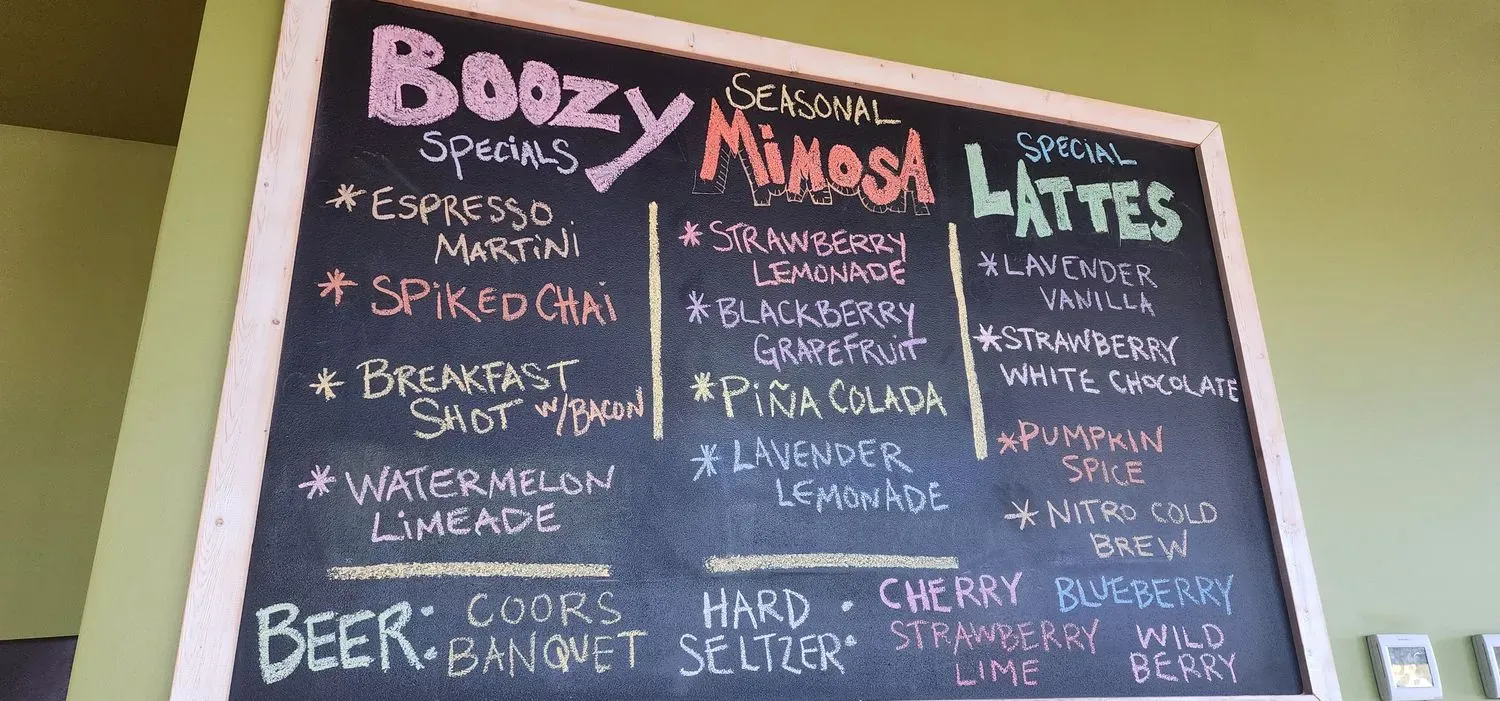 BOOZY
SPECIALS
* ESPRESSO
MARTINI
* SPIKED CHAI
* BREAKFAST
SHOT W/BACON
* WATERMELON
LIMEADE
SEASONAL
MIMOSA
* STRAWBERRY
LEMONADE
* BLACKBERRY
GRAPEFRUIT
* PIÑA COLADA
* LAVENDER
LEMONADE
SPECIAL
LATTES
* LAVENDER
VANILLA
* STRAWBERRY
WHITE CHOCOLATE
* PUMPKIN
SPICE
* NITRO COLD
BREW
BEER: COORS
BANQUET
HARD
SELTZER:
CHERRY
BLUEBERRY
STRAWBERRY
LIME
WILD
BERRY